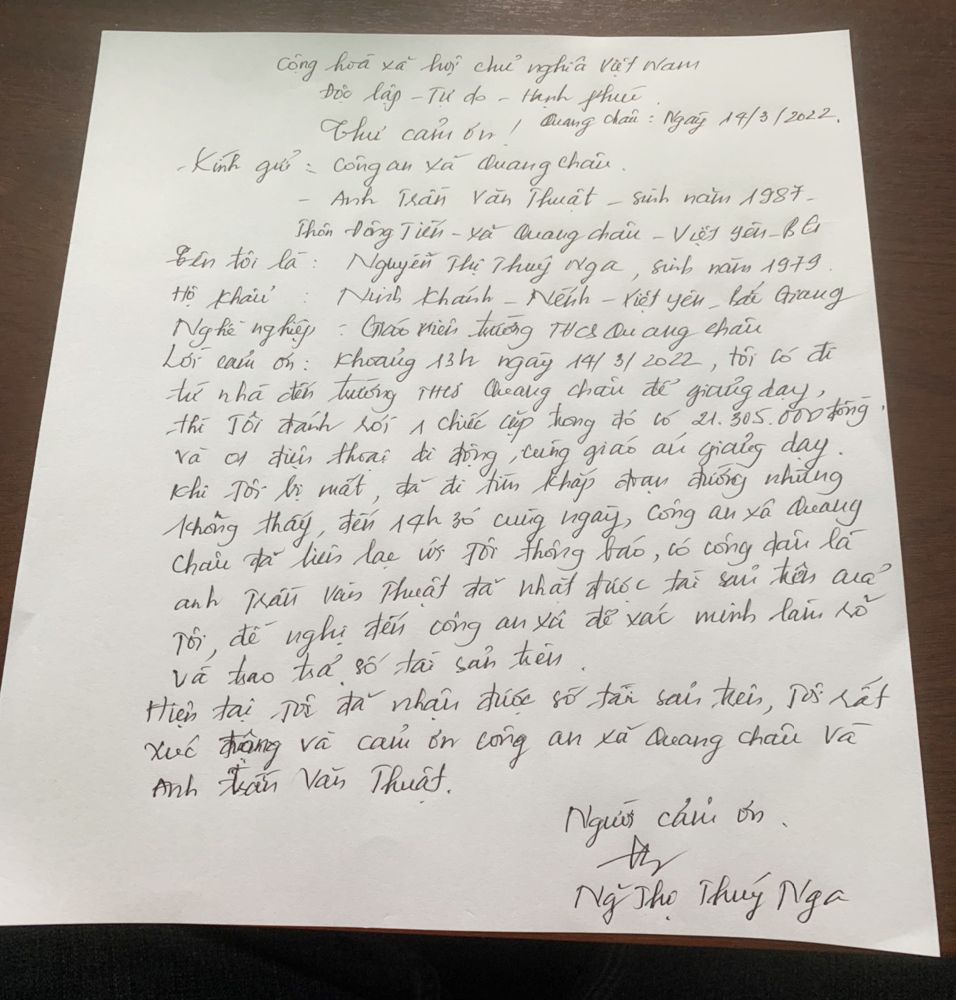 Cộng hoà xã hội chủ nghĩa Việt Nam
Độc lập - Tự do - Hạnh phúc
Quang Châu : Ngày 14/3/2022.
Thư cảm ơn !
- Kính gửi : Công an xã Quang Châu.
- Anh Trần Văn Thuật - sinh năm 1987 -
Thôn Đông Tiến - xã Quang Châu - Việt Yên - BG
Tên tôi là : Nguyễn Thị Thuý Nga, sinh năm 1979.
Hộ khẩu : Ninh Khánh - Nếnh - Việt Yên - Bắc Giang
Nghề nghiệp : Giáo viên trường THCS Quang Châu
Lời cảm ơn : Khoảng 13h ngày 14/3/2022, tôi có đi
từ nhà đến trường THCS Quang Châu để giảng dạy,
thì Tôi đánh rơi 1 chiếc cặp trong đó có 21.305.000 đồng
và 01 điện thoại di động, cùng giáo án giảng dạy.
Khi Tôi bị mất, đã đi tìm khắp đoạn đường nhưng
không thấy, đến 14h30 cùng ngày, Công an xã Quang
Châu đã liên lạc với Tôi thông báo, có công dân là
anh Trần Văn Thuật đã nhặt được tài sản trên của
Tôi, đề nghị đến công an xã để xác minh làm rõ
và trao trả số tài sản trên.
Hiện tại Tôi đã nhận được số tài sản trên, Tôi rất
xúc động và cảm ơn công an xã Quang Châu và
Anh Trần Văn Thuật.
Người cảm ơn.
Ng Thị Thuý Nga